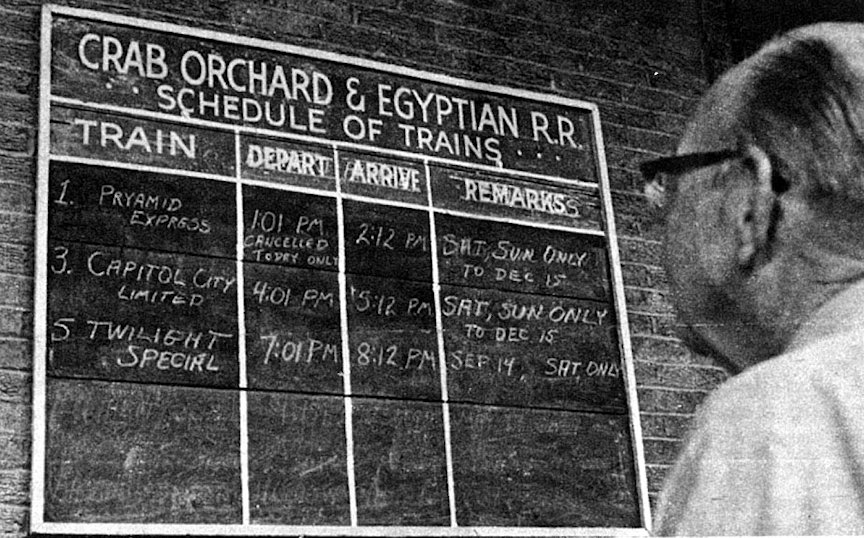 CRAB ORCHARD & EGYPTIAN R.R.
· · SCHEDULE OF TRAINS · · ·
TRAIN DEPART ARRIVE REMARKS
1. PRYAMID EXPRESS 1:01 PM CANCELLED TODAY ONLY 2:12 PM SAT, SUN ONLY TO DEC 15
3. CAPITOL CITY LIMITED 4:01 PM 5:12 PM SAT, SUN ONLY TO DEC 15
5 TWILIGHT SPECIAL 7:01 PM 8:12 PM SEP 14, SAT ONLY